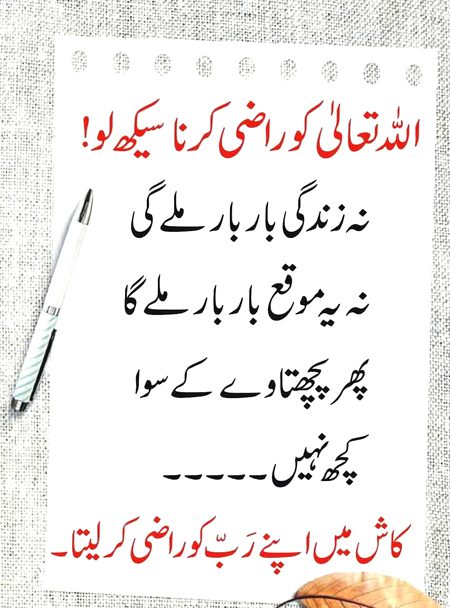 اللہ تعالیٰ کو راضی کرنا سیکھ لو!
نہ زندگی بار بار ملے گی
نہ یہ موقع بار بار ملے گا
پھر پچھتاوے کے سوا
کچھ نہیں ۔۔۔۔۔
کاش میں اپنے رَبّ کو راضی کر لیتا۔